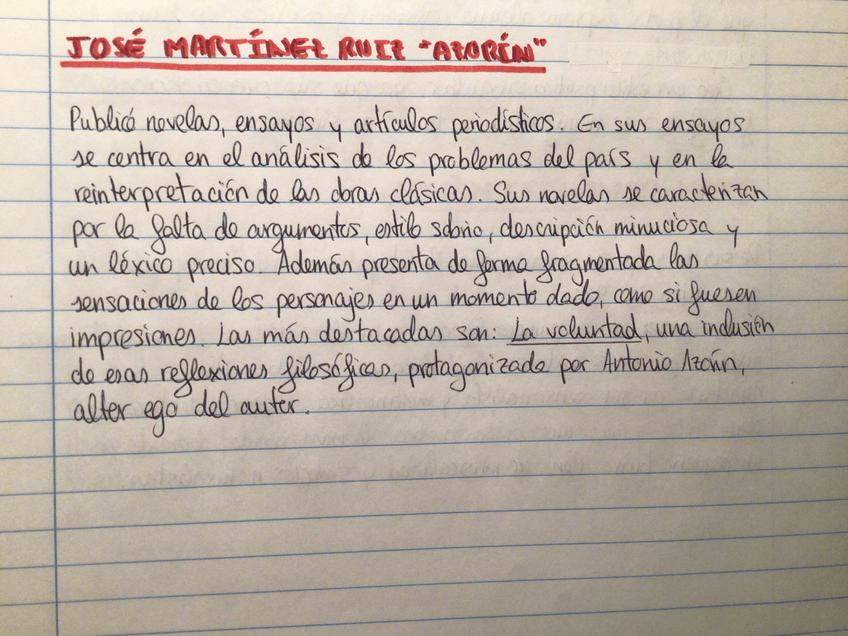 JOSÉ MARTÍNEZ RUIZ "AZORÍN"
Publicó novelas, ensayos y artículos periodísticos. En sus ensayos
se centra en el análisis de los problemas del país y en la
reinterpretación de las obras clásicas. Sus novelas se caracterizan
por la falta de argumentos, estilo sobrio, descripción minuciosa y
un léxico preciso. Además presenta de forma fragmentada las
sensaciones de los personajes en un momento dado, como si fuesen
impresiones. Las más destacadas son: La voluntad, una inclusión
de esas reflexiones filosóficas, protagonizada por Antonio Azorín,
alter ego del autor.